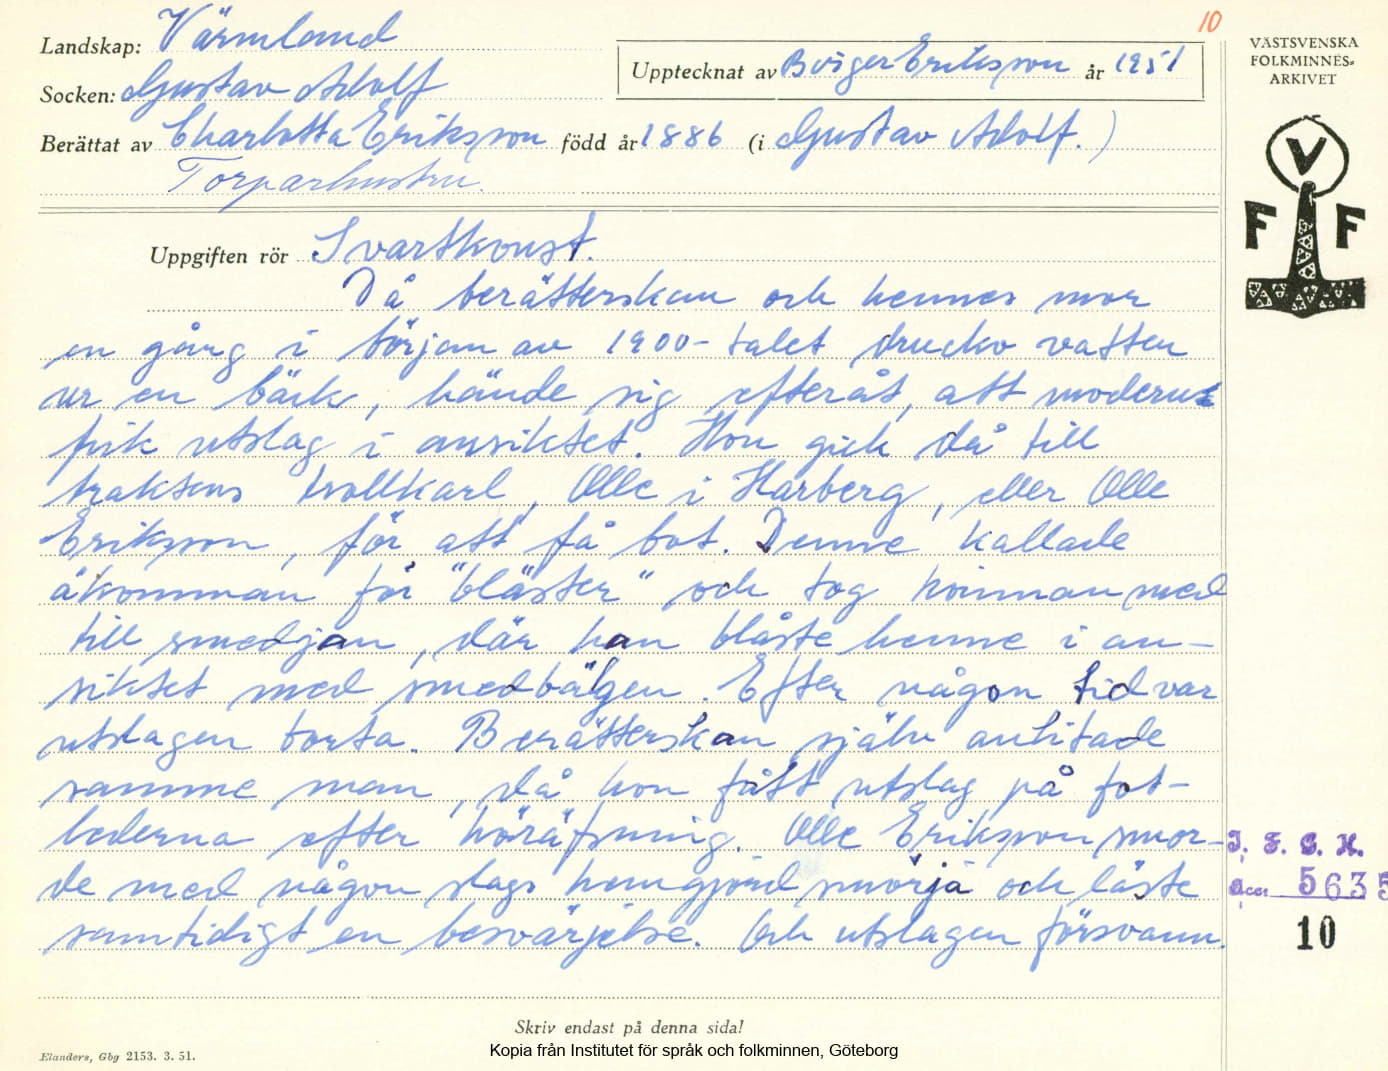 10
Landskap: Värmland
Socken: Gustav Adolf
Upptecknat av Birger Eriksson år 1951
Berättat av Charlotta Eriksson född år 1886 (i Gustav Adolf.)
Torparhustru.
VÄSTSVENSKA
FOLKMINNES-
ARKIVET
V
F F
Uppgiften rör Svartkonst.
Då berätterskan och hennes mor
en gång i början av 1900-talet drucko vatten
ur en bäck, hände sig efteråt, att modern
fick utslag i ansiktet. Hon gick då till
traktens trollkarl, Olle i Harberg, eller Olle
Eriksson, för att få bot. Denne kallade
åkomman för "bläster" och tog kvinnan med
till smedjan, där han blåste henne i an-
siktet med smedbälgen. Efter någon tid var
utslagen borta. Berätterskan själv anlitade
samme man, då hon fått utslag på fot-
lederna efter höräfsning. Olle Eriksson smor-
de med någon slags hemgjord smörja och läste
samtidigt en besvärjelse. Och utslagen försvann.
I. F. G. H.
acc. 5635
10
Skriv endast på denna sida!
Elanders, Gbg 2153. 3. 51.
Kopia från Institutet för språk och folkminnen, Göteborg